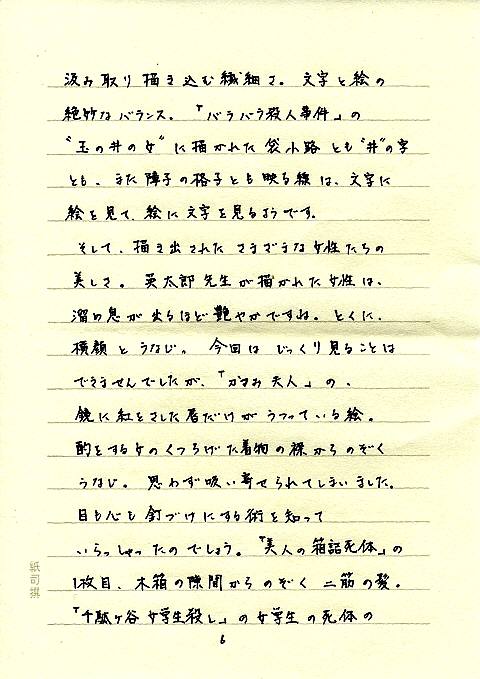 汲み取り描き込む繊細さ。文字と絵の
絶妙なバランス。「バラバラ殺人事件」の
“玉の井の女”に描かれた袋小路とも“井”の字
とも、また障子の格子とも映る線は、文字に
絵を見て、絵に文字を見るようです。
そして、描き出されたさまざまな女性たちの
美しさ。英太郎先生が描かれた女性は、
溜め息が出るほど艶やかですね。とくに、
横顔とうなじ。今回はじっくり見ることは
できませんでしたが、「かすみ夫人」の、
鏡に紅をさした唇だけがうつっている絵。
酌をする女のくつろげた着物の襟からのぞく
うなじ。思わず吸い寄せられてしまいました。
目も心も釘づけにする術を知って
いらっしゃったのでしょう。「美人の箱詰死体」の
1枚目、木箱の隙間からのぞく二筋の髪。
「千駄ヶ谷女学生殺し」の女学生の死体の
6
紙司撰